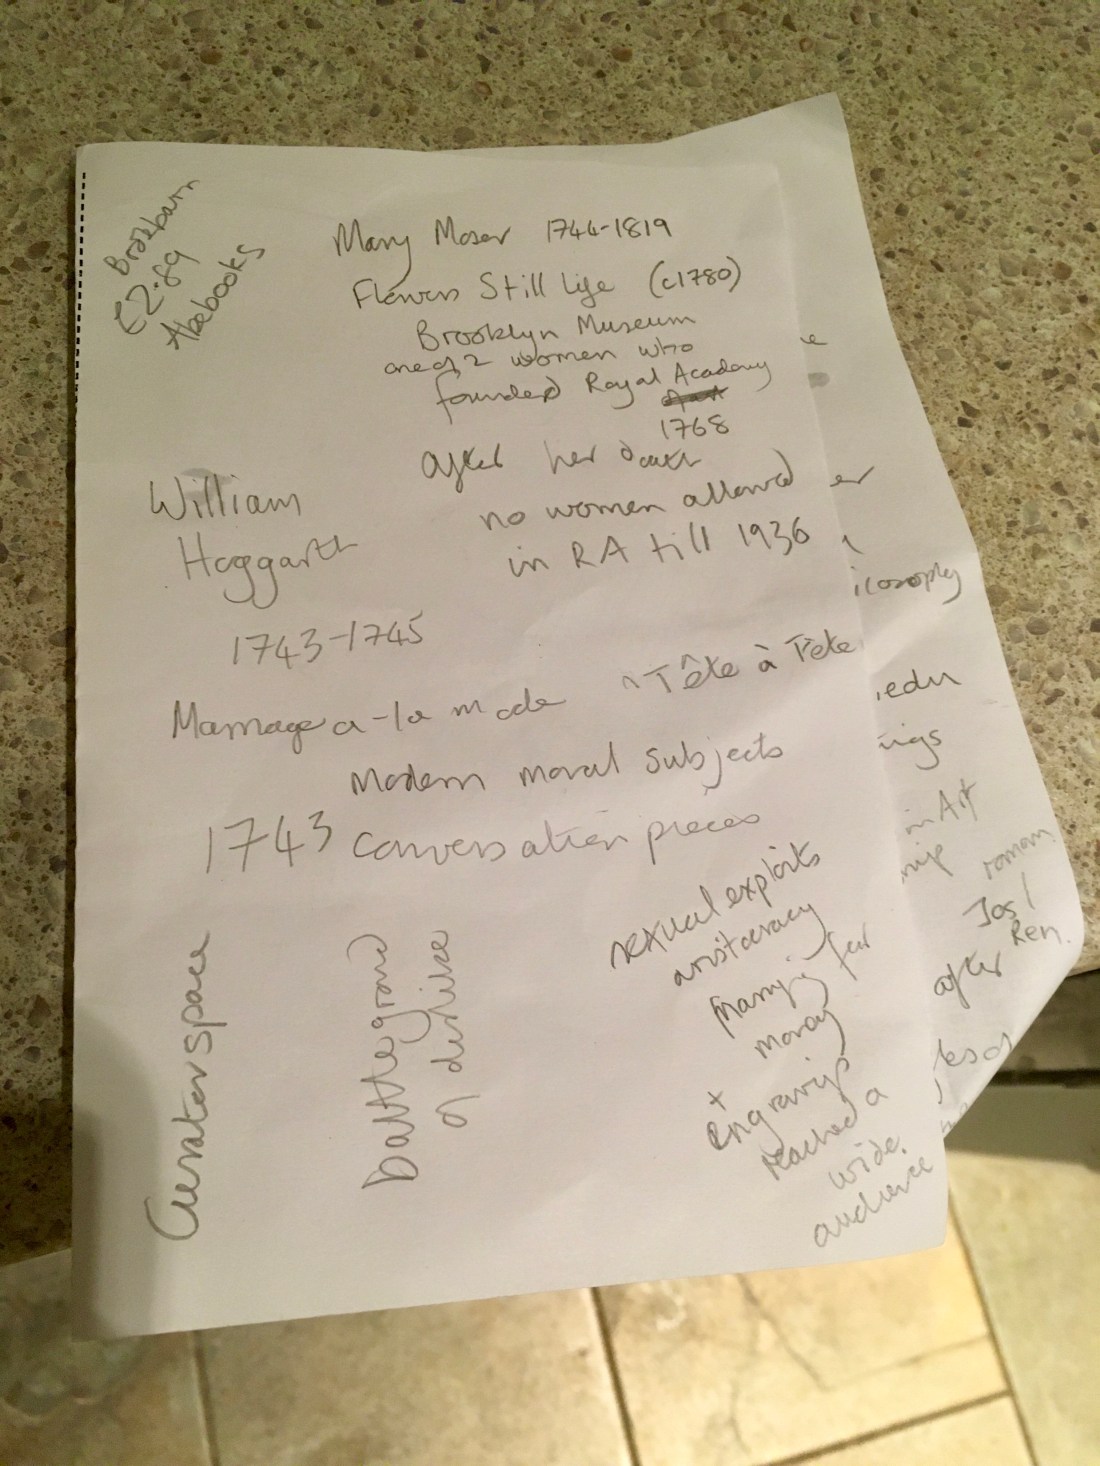 Brokbarn
£2.89
Abebooks
Mary Moser 1744-1819
Flowers Still life (c1780)
Brooklyn Museum
one of 2 women who
founded Royal Academy
1768
after her death
no women allowed
in RA till 1936
William
Hoggarth
1743-1745
Marriage a-la mode "Tête à Tête
Modern moral subjects
1743 Conversation pieces
sexual exploits
aristocracy
marrying for
money
+
engravings
reached a
wide
audience
battlegrond
of dislike
Curatorspace
er
ilosophy
.edu
ings
in Art
roman
Jos/
Ren.
after